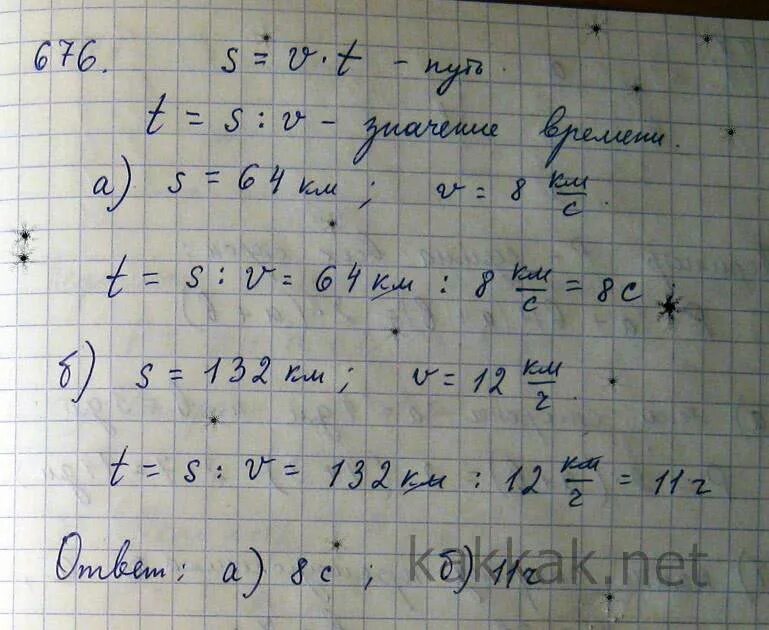 676. s = v · t – путь.
t = s : v – значение времени.
а) s = 64 км ; v = 8 км/с.
t = s : v = 64 км : 8 км/с = 8 с
б) s = 132 км ; v = 12 км/ч.
t = s : v = 132 км : 12 км/ч = 11 ч
Ответ: а) 8 с ; б) 11 ч
kakkak.net